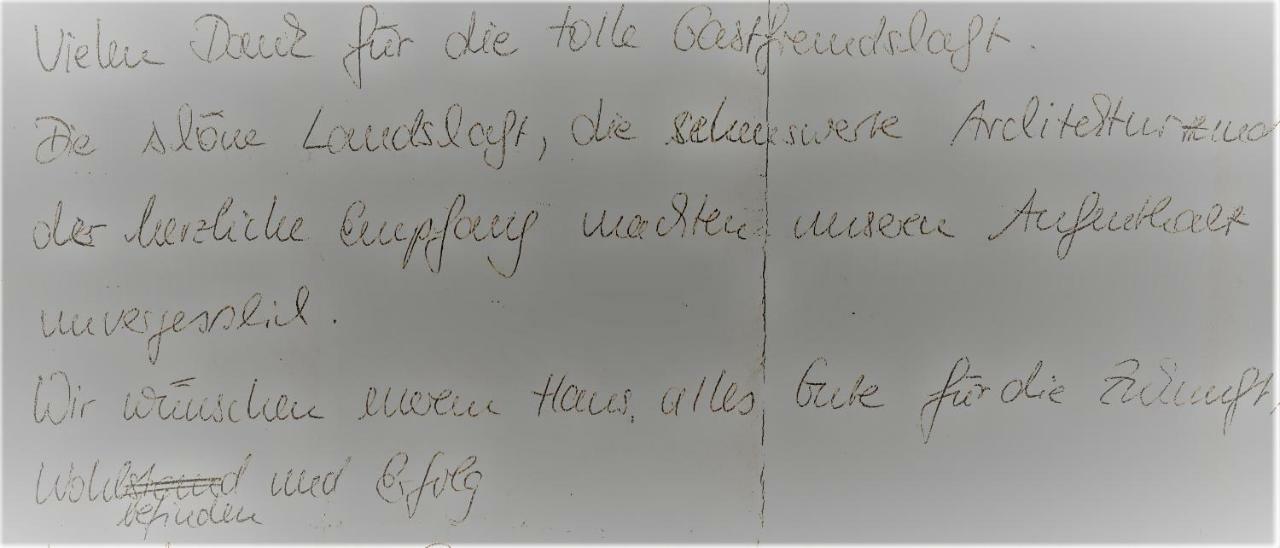 Vielen Dank für die tolle Gastfreundschaft.
Die schöne Landschaft, die sehenswerte Architektur und
der herzliche Empfang machten unseren Aufenthalt
unvergesslich.
Wir wünschen eurem Haus, alles Gute für die Zukunft,
Wohlstand und Erfolg
befinden